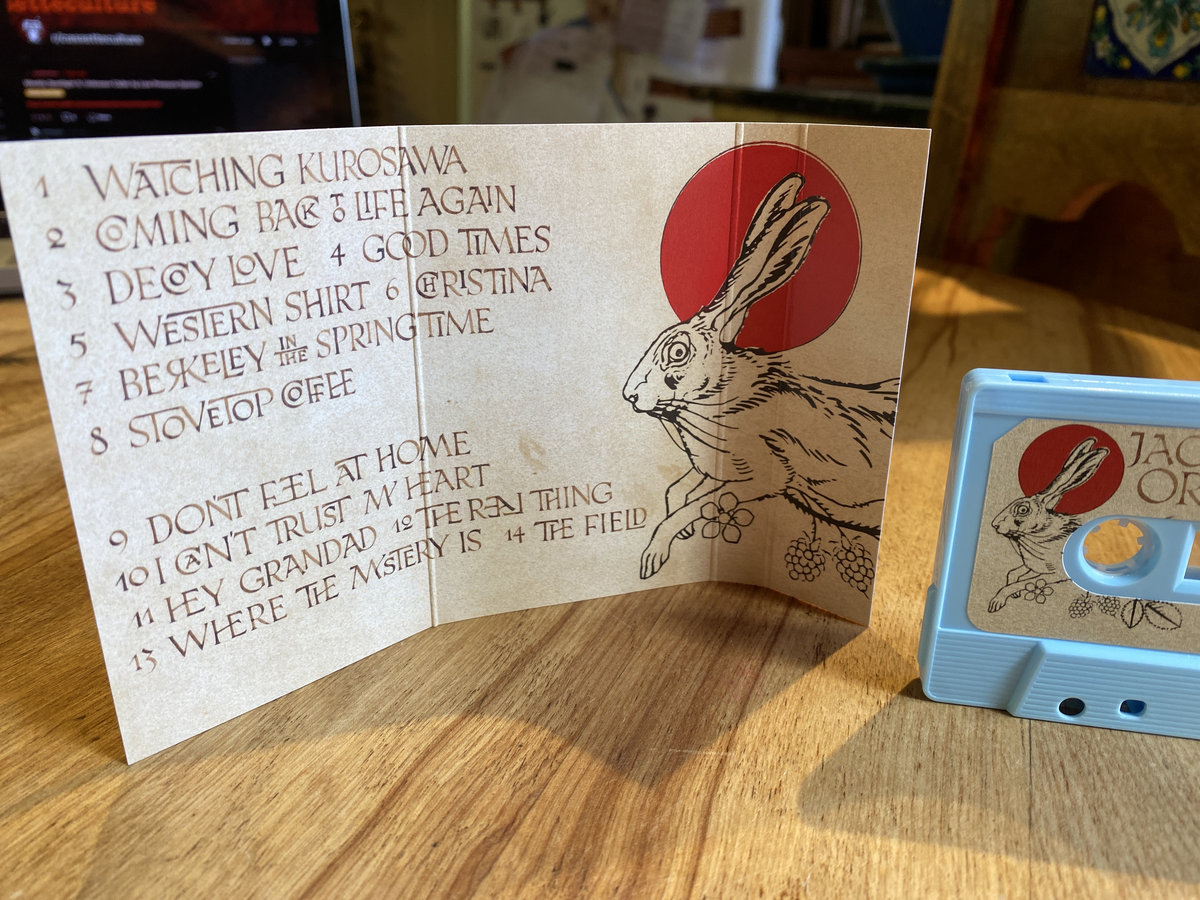 1 WATCHING KUROSAWA
2 COMING BACK TO LIFE AGAIN
3 DECOY LOVE 4 GOOD TIMES
5 WESTERN SHIRT 6 CHRISTINA
7 BERKELEY IN THE SPRINGTIME
8 STOVETOP COFFEE
9 DON'T FEEL AT HOME
10 I CAN'T TRUST MY HEART
11 HEY GRANDAD 12 THE REAL THING
13 WHERE THE MYSTERY IS 14 THE FIELD